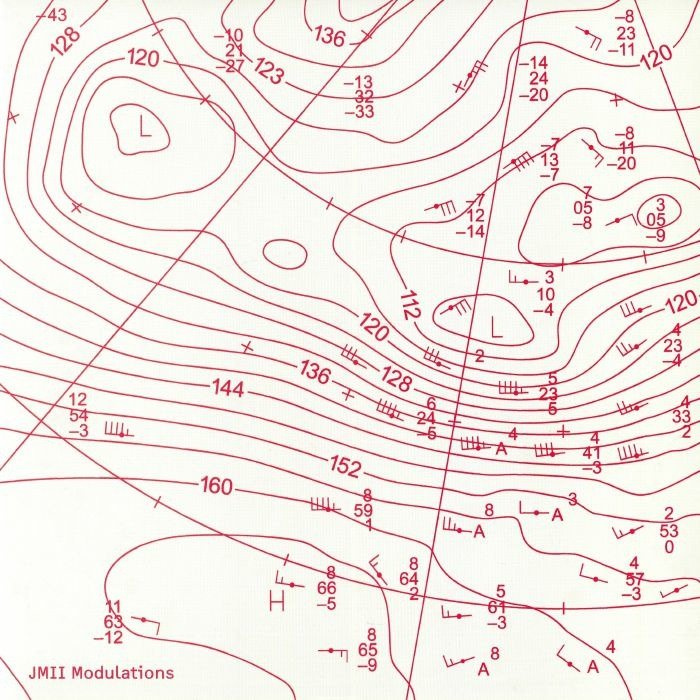 -43
128
136
-8
23
-11
120
-10
21
-27
123
120
-14
24
-20
-13
32
-33
L
-7
13
-7
-8
11
-20
7
05
-8
3
05
-9
-7
12
-14
3
10
-4
112
120
L
120
4
23
-4
2
136
128
144
5
23
5
12
54
-3
6
24
-5
4
33
2
4
A
4
41
-3
152
160
8
59
1
8
A
3
A
2
53
0
8
66
-5
H
8
64
2
4
57
-3
5
61
-3
11
63
-12
8
65
-9
8
A
4
A
JMII Modulations